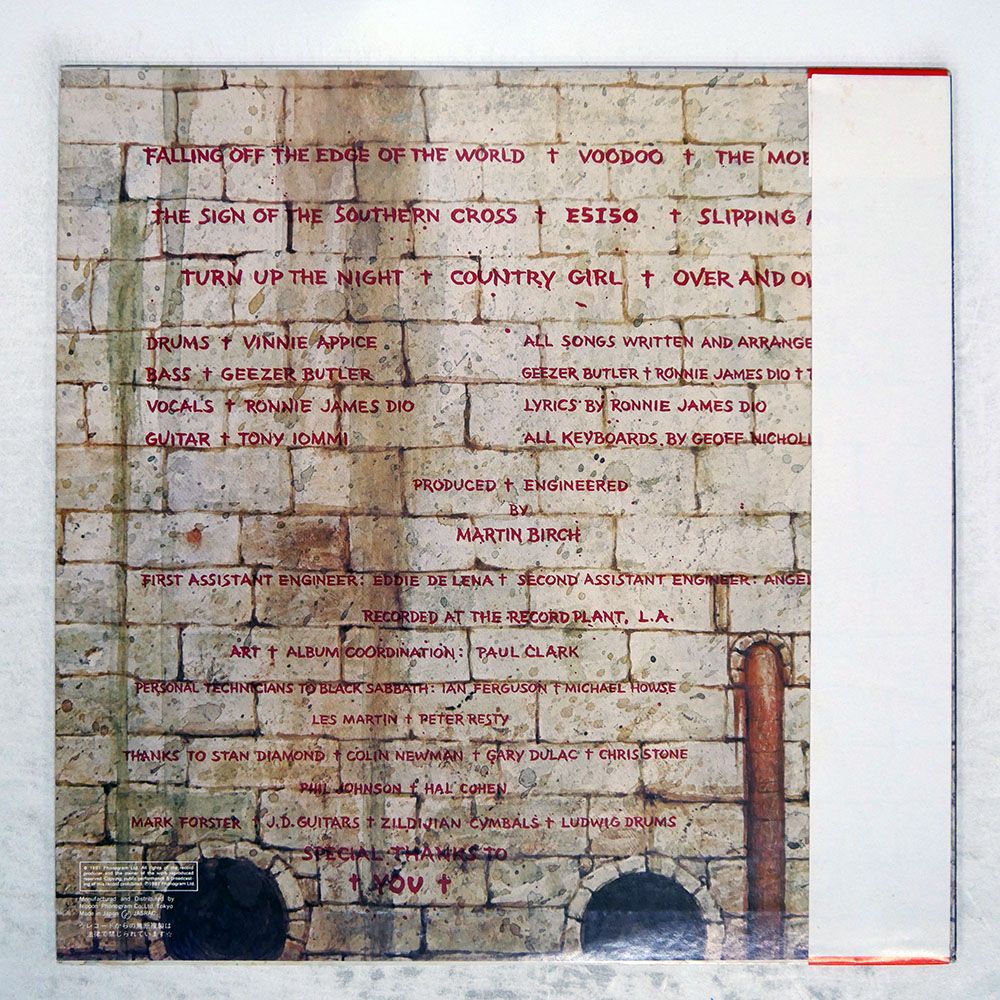 FALLING OFF THE EDGE OF THE WORLD † VOODOO † THE MOB
THE SIGN OF THE SOUTHERN CROSS † E5150 † SLIPPING
TURN UP THE NIGHT † COUNTRY GIRL † OVER AND
DRUMS † VINNIE APPICE
BASS † GEEZER BUTLER
VOCALS † RONNIE JAMES DIO
GUITAR † TONY IOMMI
ALL SONGS WRITTEN AND ARRANGE
GEEZER BUTLER † RONNIE JAMES DIO † T
LYRICS BY RONNIE JAMES DIO
ALL KEYBOARDS BY GEOFF NICHOLL
PRODUCED † ENGINEERED
BY
MARTIN BIRCH
FIRST ASSISTANT ENGINEER: EDDIE DE LENA † SECOND ASSISTANT ENGINEER: ANGEL
RECORDED AT THE RECORD PLANT, L.A.
ART † ALBUM COORDINATION: PAUL CLARK
PERSONAL TECHNICIANS TO BLACK SABBATH: IAN FERGUSON † MICHAEL HOWSE
LES MARTIN † PETER RESTY
THANKS TO STAN DIAMOND † COLIN NEWMAN † GARY DULAC † CHRIS STONE
PHIL JOHNSON † HAL COHEN
MARK FORSTER † J.D. GUITARS † ZILDIJIAN CYMBALS † LUDWIG DRUMS
SPECIAL THANKS TO
† YOU †
℗1981 Phonogram Ltd. All rights of the record
producer and the owner of the work reproduced
reserved. Copying, public performance & broadcast-
ing of this record prohibited. ©1981 Phonogram Ltd.
Manufactured and Distributed by
Nippon Phonogram Co., Ltd., Tokyo
Made in Japan JASRAC
☆レコードからの無断複製は
法律で禁じられています☆